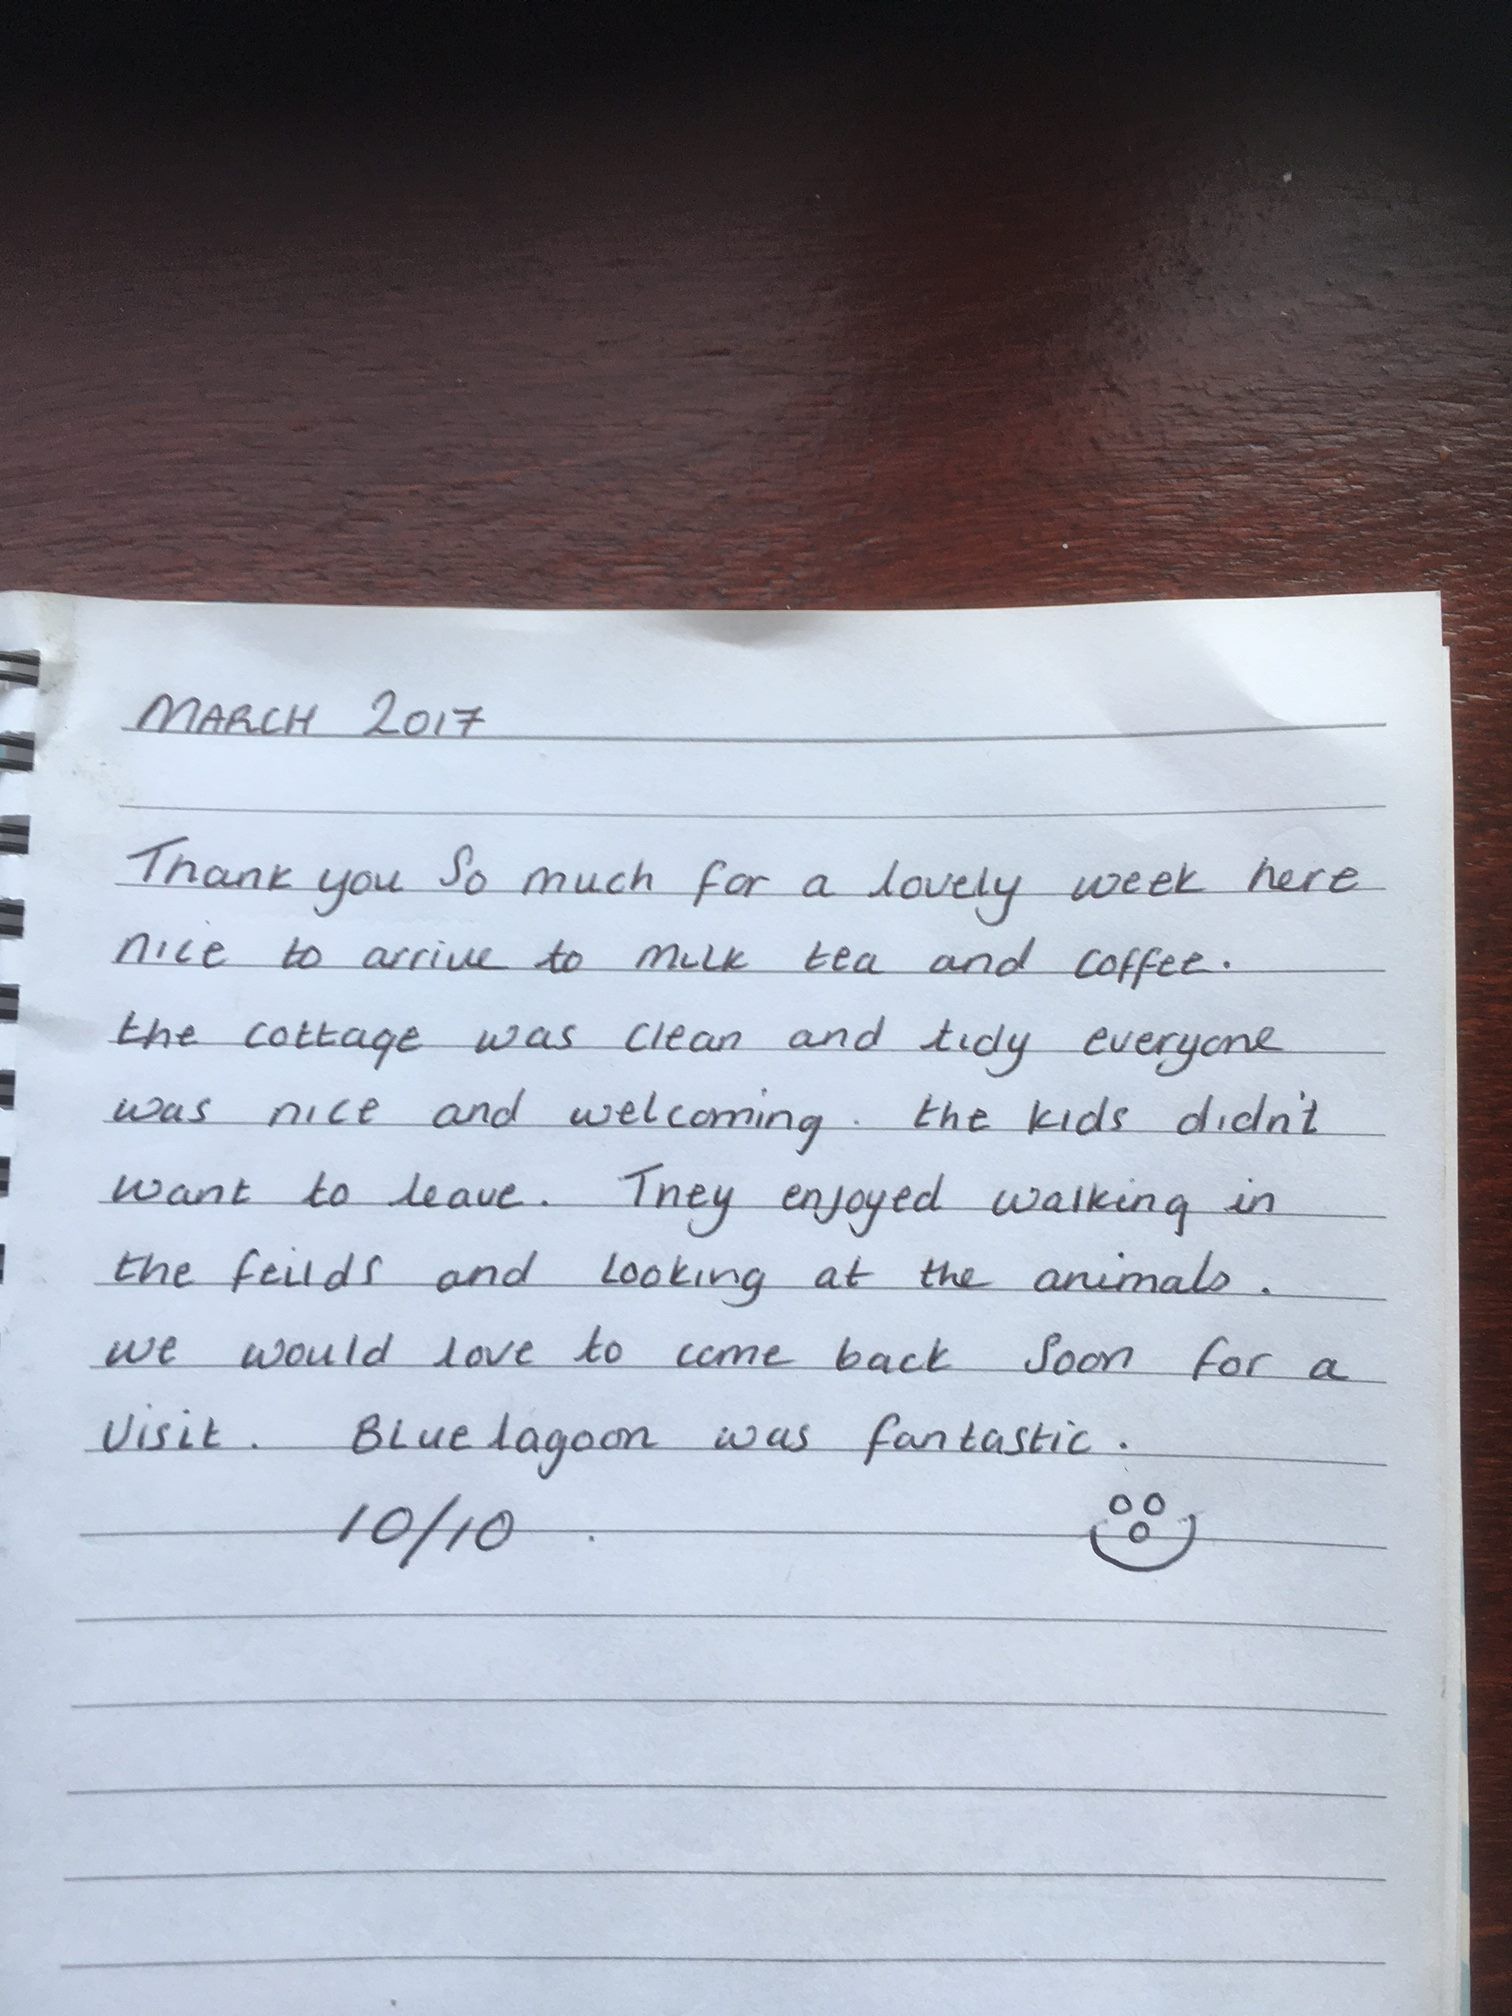 MARCH 2017
Thank you So much for a lovely week here
nice to arrive to milk tea and coffee.
the cottage was clean and tidy everyone
was nice and welcoming. the kids didn't
want to leave. They enjoyed walking in
the feilds and looking at the animals.
we would love to come back Soon for a
visit. Blue lagoon was fantastic.
10/10.